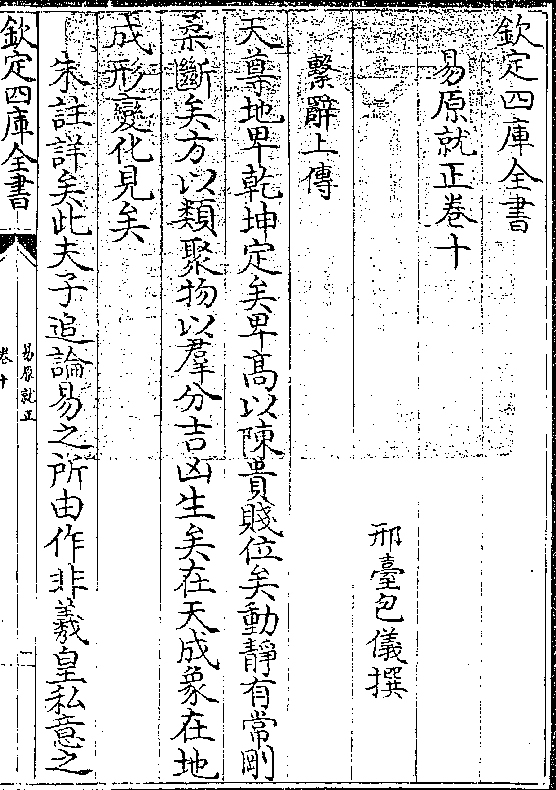 欽定四庫全書
易原就正卷十
邢臺包儀撰
繫辭上傳
天尊地卑乾坤定矣卑高以陳貴賤位矣動靜有常剛
柔斷矣方以類聚物以羣分吉凶生矣在天成象在地
成形變化見矣
朱註詳矣此夫子追論易之所由作非羲皇私意之
欽定四庫全書
易原就正
卷十
一